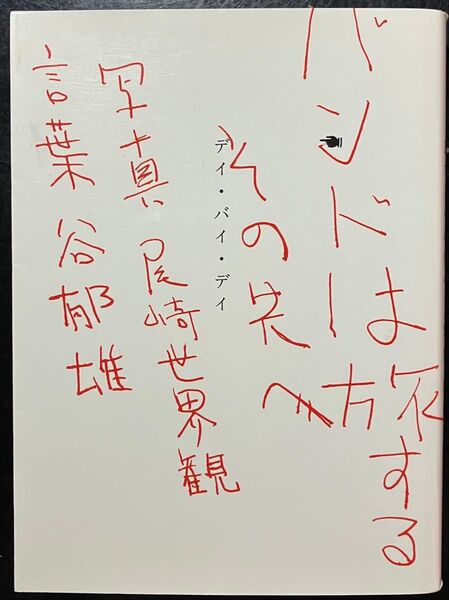 バンドは旅する
その先へ
デイ・バイ・デイ
写真 尾崎世界観
言葉 谷郁雄